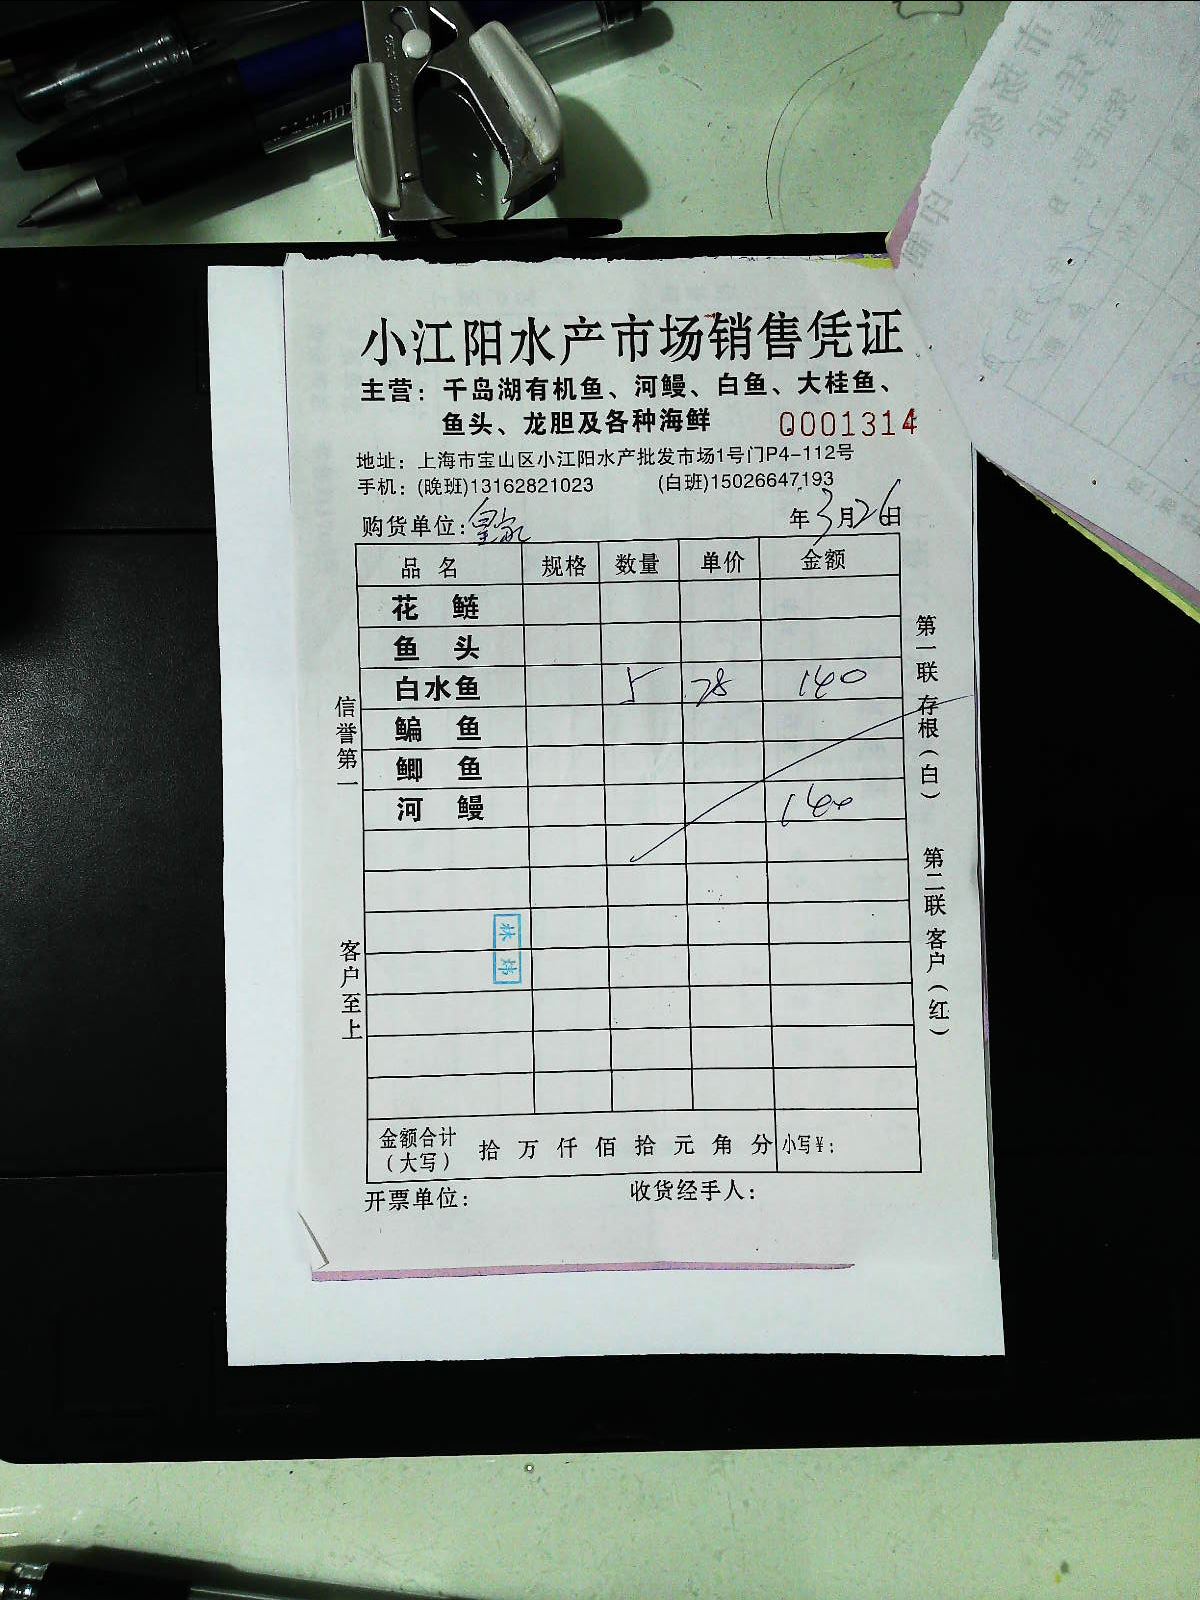 小江阳水产市场销售凭证
主营：千岛湖有机鱼、河鳗、白鱼、大桂鱼、
鱼头、龙胆及各种海鲜 0001314
地址：上海市宝山区小江阳水产批发市场1号门P4-112号
手机：(晚班)13162821023 (白班)15026647193
购货单位：皇家 年3月26日
品名 规格 数量 单价 金额
花鲢
鱼头
白水鱼 5 28 140
鳊鱼
鲫鱼
河鳗 140
信誉第一
客户至上
第一联 存根（白）
第二联 客户（红）
林炜
金额合计（大写） 拾 万 仟 佰 拾 元 角 分 小写¥：
开票单位： 收货经手人：